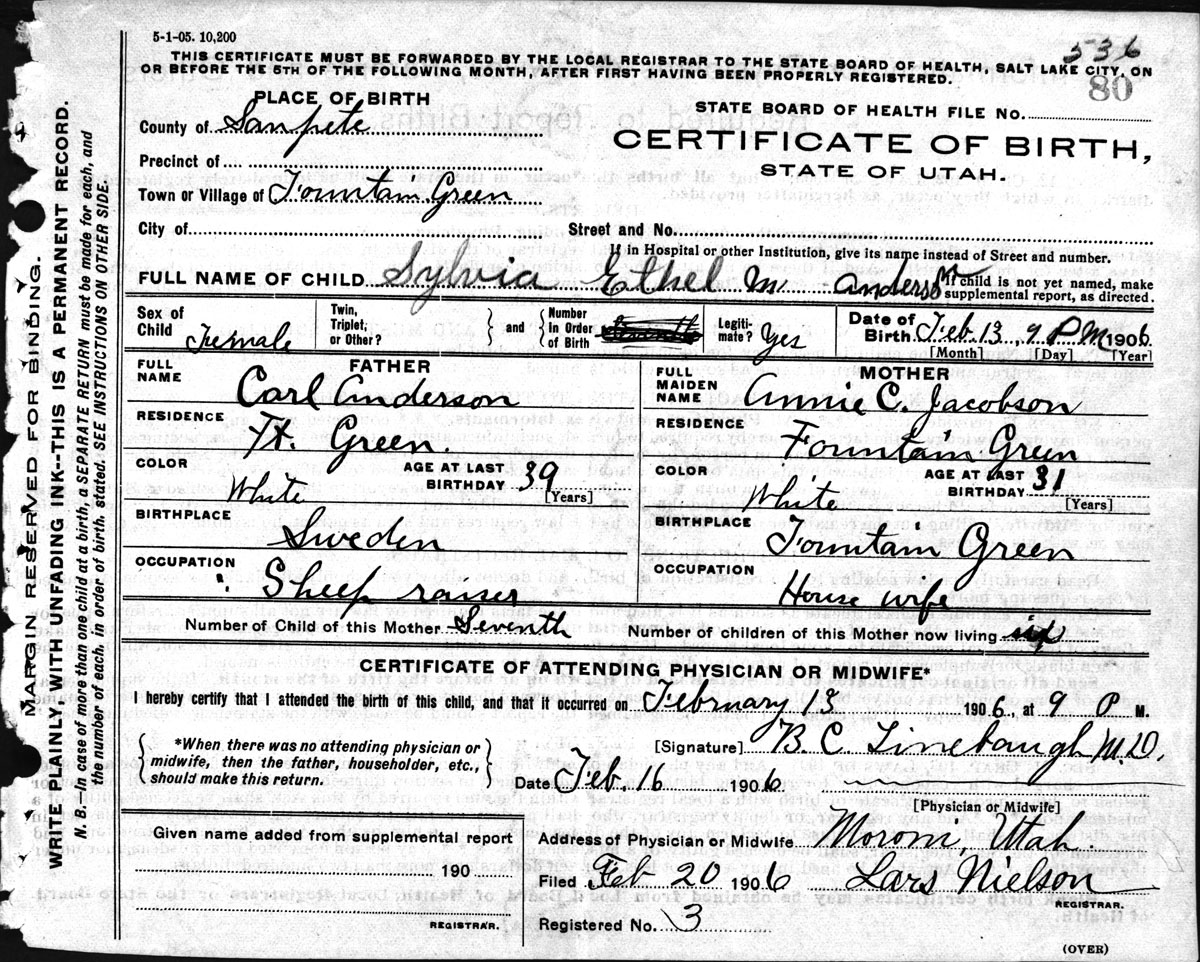 5-1-05. 10,200
536
THIS CERTIFICATE MUST BE FORWARDED BY THE LOCAL REGISTRAR TO THE STATE BOARD OF HEALTH, SALT LAKE CITY, ON
OR BEFORE THE 5TH OF THE FOLLOWING MONTH, AFTER FIRST HAVING BEEN PROPERLY REGISTERED.
80
PLACE OF BIRTH
STATE BOARD OF HEALTH FILE NO.
County of Sanpete
CERTIFICATE OF BIRTH,
STATE OF UTAH.
Precinct of
Town or Village of Fountain Green
City of Street and No.
If in Hospital or other Institution, give its name instead of Street and number.
FULL NAME OF CHILD Sylvia Ethel M Anderson
If child is not yet named, make
supplemental report, as directed.
Sex of Child Female
Twin, Triplet, or Other? } and { Number In Order of Birth
Legiti- mate? Yes
Date of Birth Feb 13, 9 P M 1906
[Month] [Day] [Year]
FATHER
FULL NAME Carl Anderson
RESIDENCE Ft. Green.
COLOR White
AGE AT LAST BIRTHDAY 39
[Years]
BIRTHPLACE Sweden
OCCUPATION Sheep raiser
MOTHER
FULL MAIDEN NAME Annie C. Jacobson
RESIDENCE Fountain Green
COLOR White
AGE AT LAST BIRTHDAY 31
[Years]
BIRTHPLACE Fountain Green
OCCUPATION House wife
Number of Child of this Mother Seventh Number of children of this Mother now living six
CERTIFICATE OF ATTENDING PHYSICIAN OR MIDWIFE*
I hereby certify that I attended the birth of this child, and that it occurred on February 13 1906, at 9 P M.
*When there was no attending physician or
midwife, then the father, householder, etc.,
should make this return.
[Signature] B. C. Linebaugh M.D.
Date Feb. 16 1906
[Physician or Midwife]
Given name added from supplemental report
190
REGISTRAR.
Address of Physician or Midwife Moroni, Utah.
Filed Feb 20 1906 Lars Nielson
REGISTRAR.
Registered No. 3
(OVER)
MARGIN RESERVED FOR BINDING.
WRITE PLAINLY, WITH UNFADING INK--THIS IS A PERMANENT RECORD.
N. B.--In case of more than one child at a birth, a SEPARATE RETURN must be made for each, and
the number of each, in order of birth, stated. SEE INSTRUCTIONS ON OTHER SIDE.